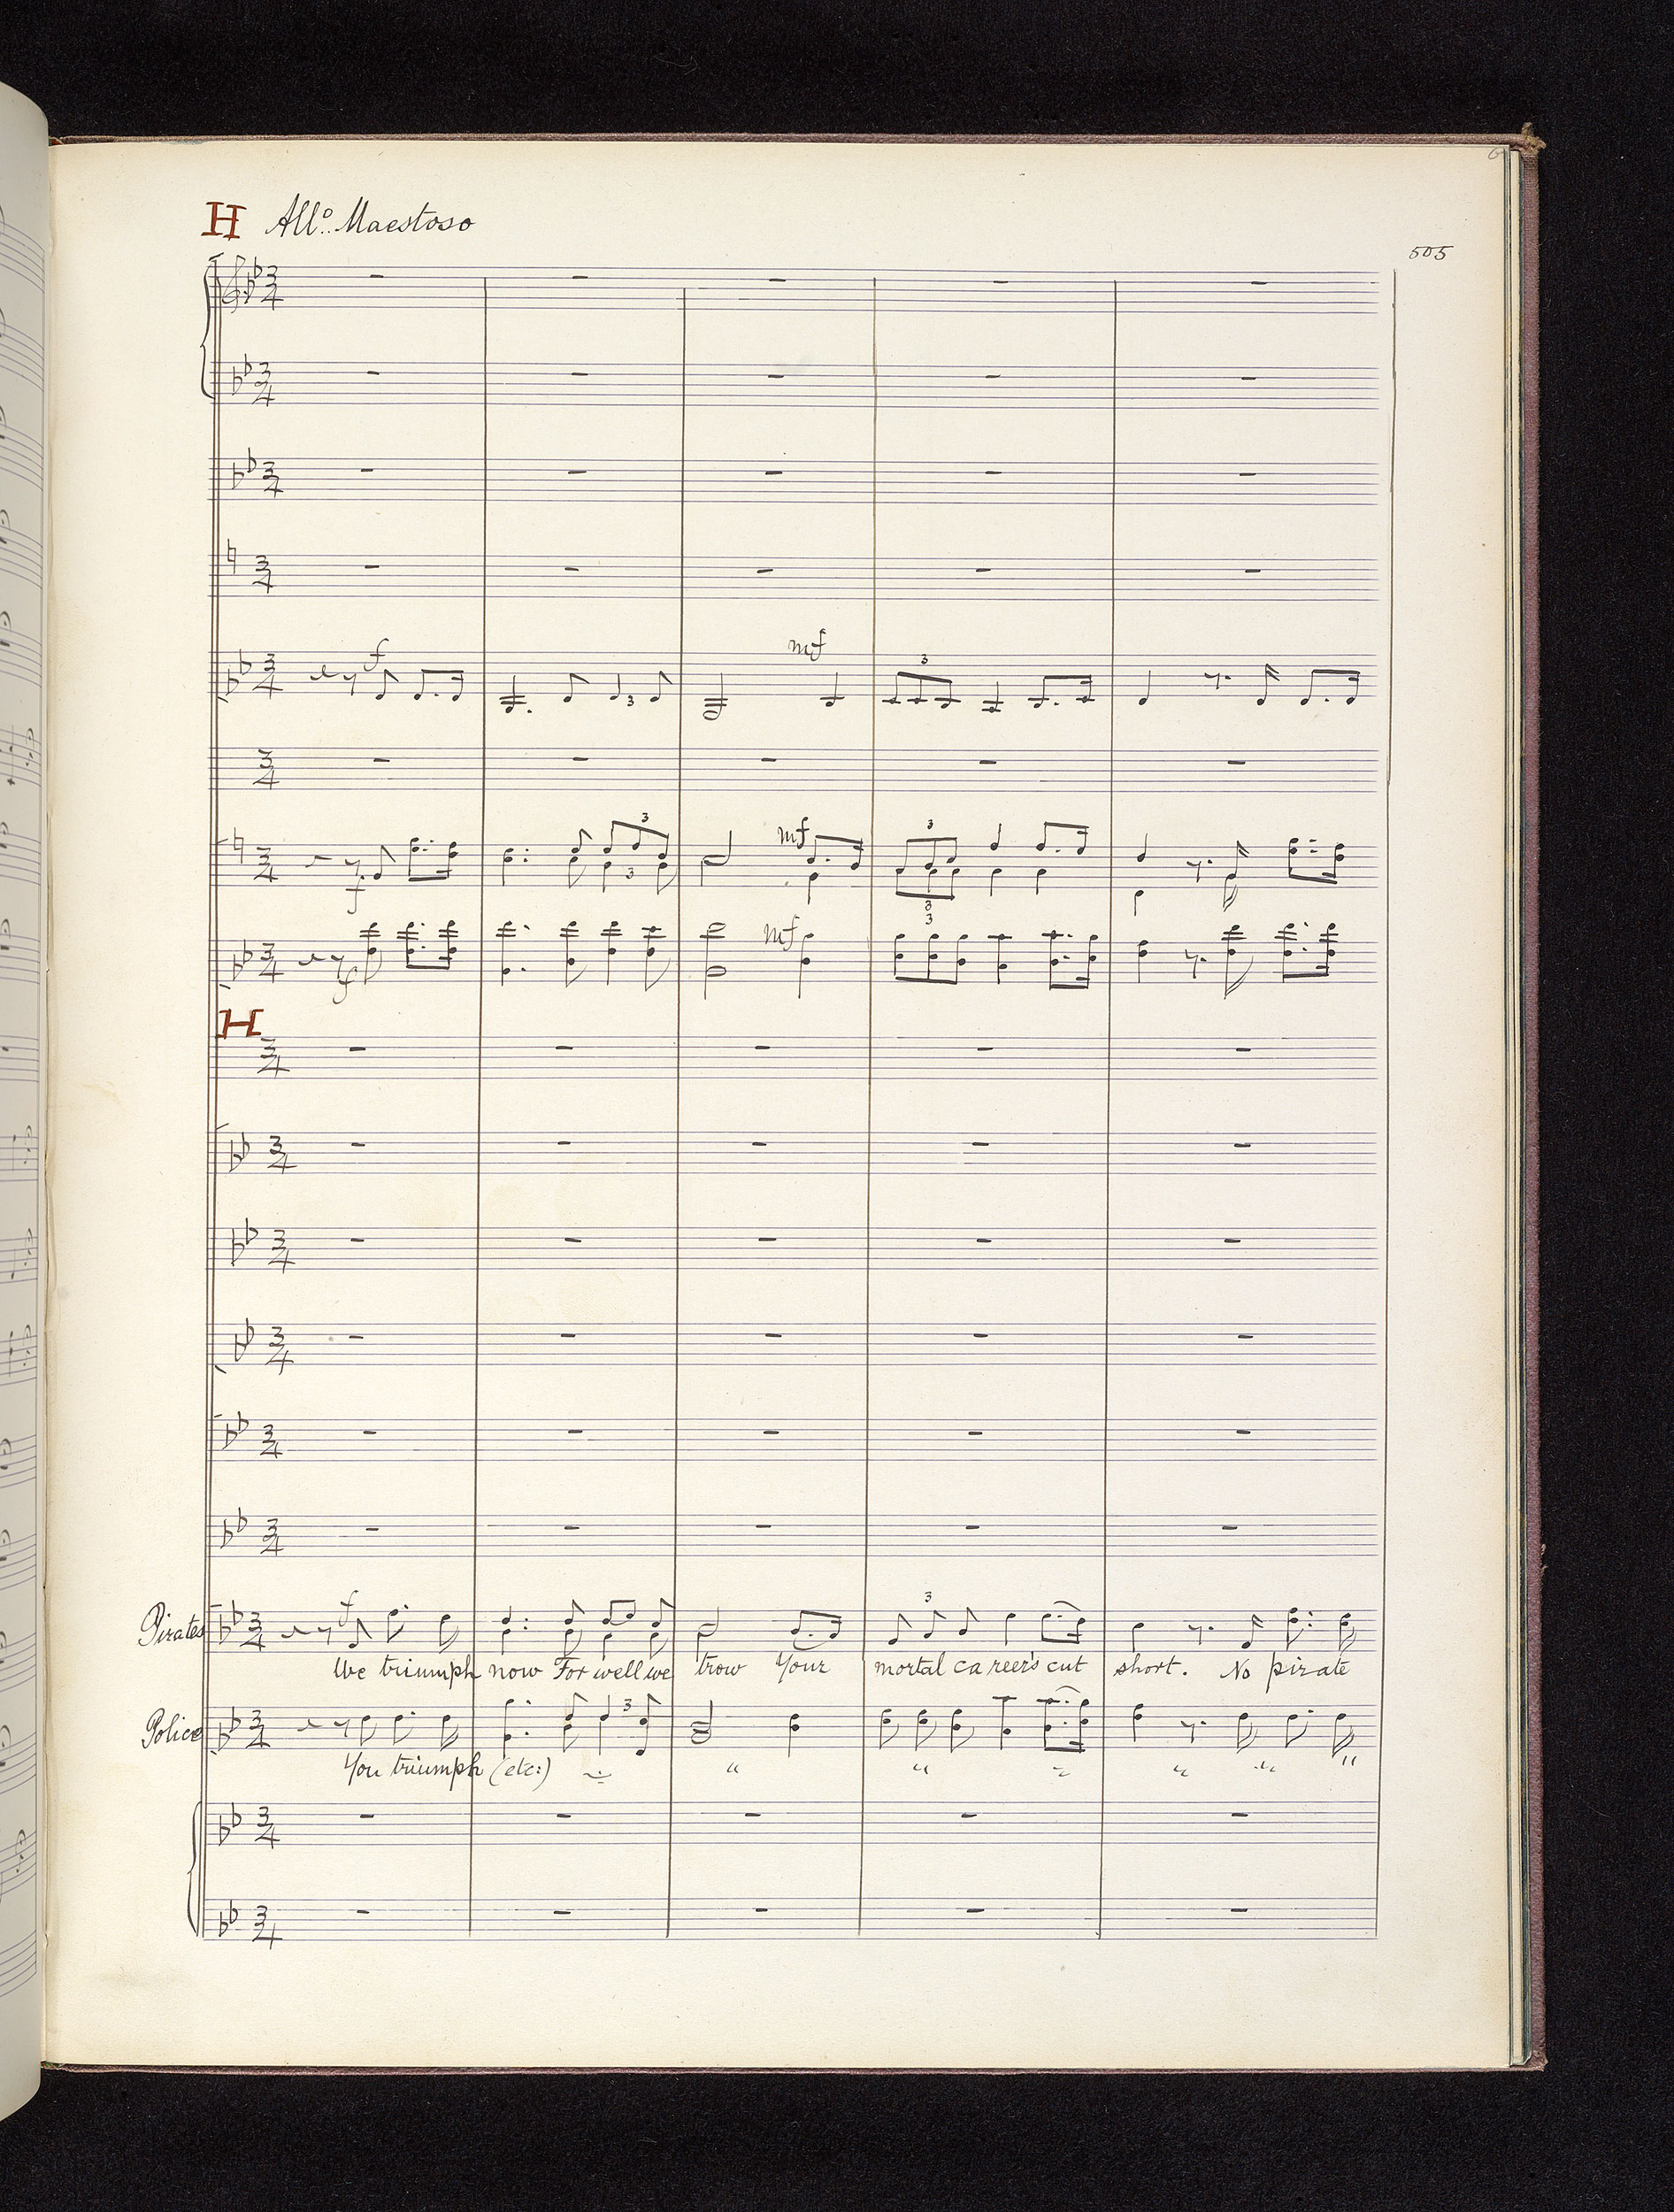 H All.º Maestoso
505
f
mf
3
3
3
mf
3
3
f
3
3
mf
f
H
Pirates
f
3
We triumph now For well we trow Your mortal career's cut short. No pirate
Police
3
You triumph (etc:) " " " " " " "